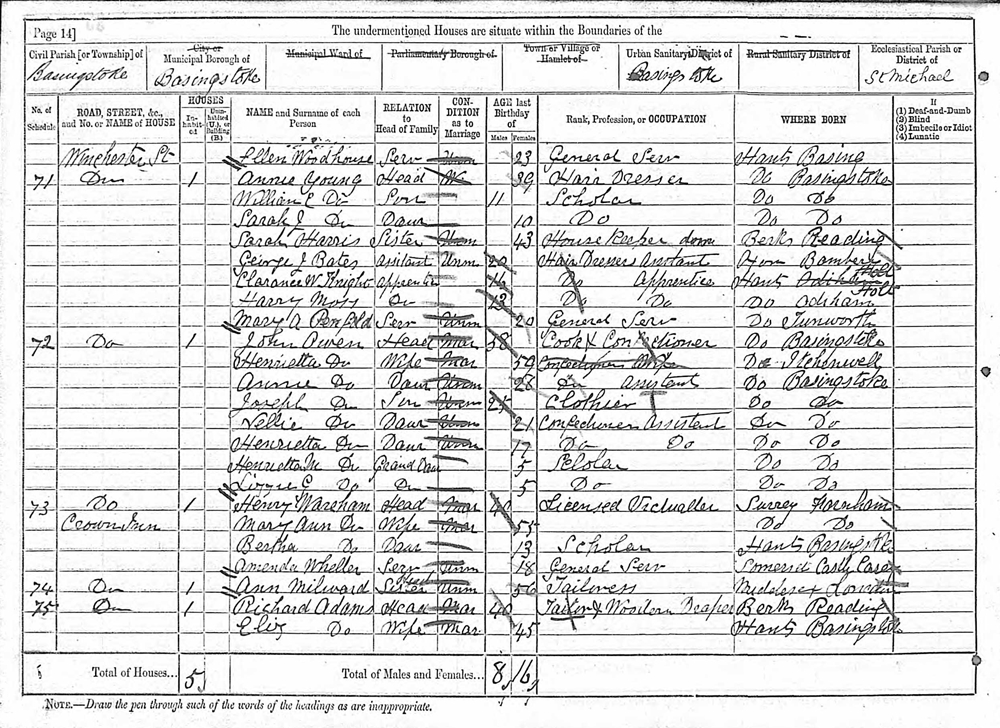 Page 14] The undermentioned Houses are situate within the Boundaries of the
Civil Parish [or Township] of City or Municipal Borough of Municipal Ward of Parliamentary Borough of Town or Village or Hamlet of Urban Sanitary District of Rural Sanitary District of Ecclesiastical Parish or District of
Basingstoke Basingstoke Basingstoke St Michael
No. of Schedule ROAD, STREET, &c., and No. or NAME of HOUSE HOUSES In-habit-ed Unin-habited (U.), or Building (B.) NAME and Surname of each Person RELATION to Head of Family CON-DITION as to Marriage AGE last Birthday of Males Females Rank, Profession, or OCCUPATION WHERE BORN If (1) Deaf-and-Dumb (2) Blind (3) Imbecile or Idiot (4) Lunatic
Winchester St Ellen Woodhouse Serv Unm 23 General Serv Hants Basing
71 Do 1 Annie Young Head 39 Hair Dresser Do Basingstoke
William C Do Son 11 Scholar Do Do
Sarah J Do Daur 10 Do Do Do
Sarah Harris Sister Unm 43 House Keeper dom Berks Reading
George J Bates Assistant Unm 20 Hair Dressers Assistant
Clarance W Knight Apprentice 16 Do Apprentice Hants Odiham Holt
Harry Moss Do 13 Do Do Do Odiham Holt
Mary A Penfold Serv Unm 20 General Serv Do Tunworth
72 Do 1 John Owen Head Mar 58 Cook & Confectioner Do Basingstoke
Henrietta Do Wife Mar 59 Confectioners Wife Do Itchenwell
Annie Do Daur Unm 28 Do Assistant Do Basingstoke
Joseph Do Son Unm 25 Clothier Do Do
Nellie Do Daur Unm 21 Confectioners Assistant Do Do
Henrietta Do Daur Unm 17 Do Do Do Do
Henrietta M Do Grand Daur 5 Scholar Do Do
Lizzie C Do Do 5 Do Do Do
73 Do 1 Henry Wareham Head Mar 40 Licensed Victualler Surrey Farnham
Crown Inn Mary Ann Do Wife Mar 55 Do Do
Bertha Do Daur 13 Scholar Hants Basingstoke
Amenda Wheller Serv Unm 18 General Serv Somerset Castle Carey
74 Do 1 Ann Milward Head Sister Unm 56 Tailoress Middlesex London
75 Do 1 Richard Adams Head Mar 40 Tailor & Woollen Draper Berks Reading
Eliz Do Wife Mar 45 Hants Basingstoke
Total of Houses... 5 Total of Males and Females... 8 16
NOTE.—Draw the pen through such of the words of the headings as are inappropriate.